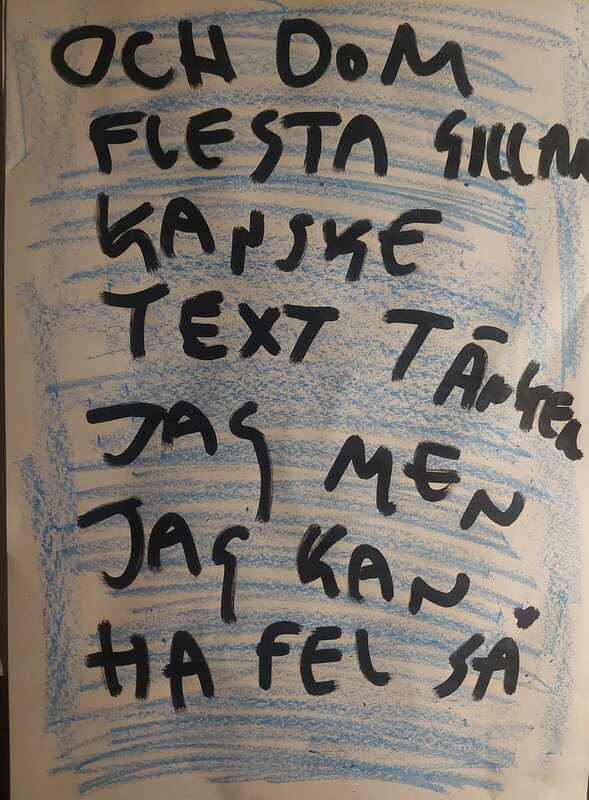 OCH DOM
FLESTA GILLAR
KANSKE
TEXT TÄNKER
JAG MEN
JAG KAN
HA FEL SÅ